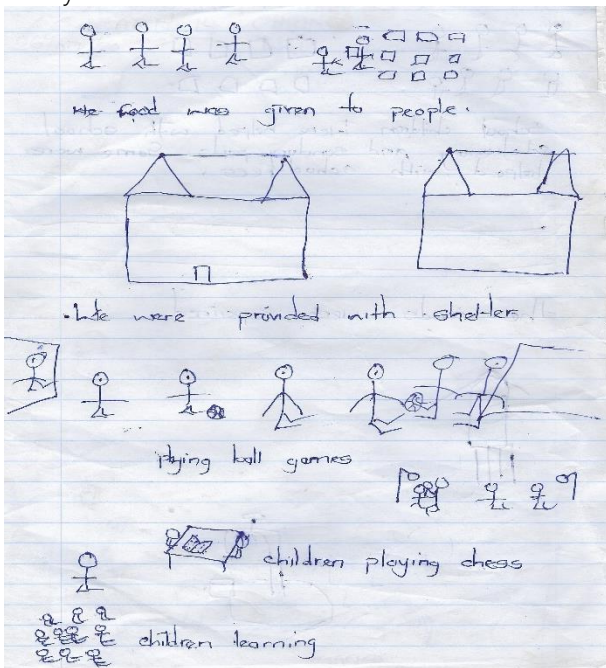 We food was given to people.
.We were provided with shelter.
plying ball games
children playing chess
children learning